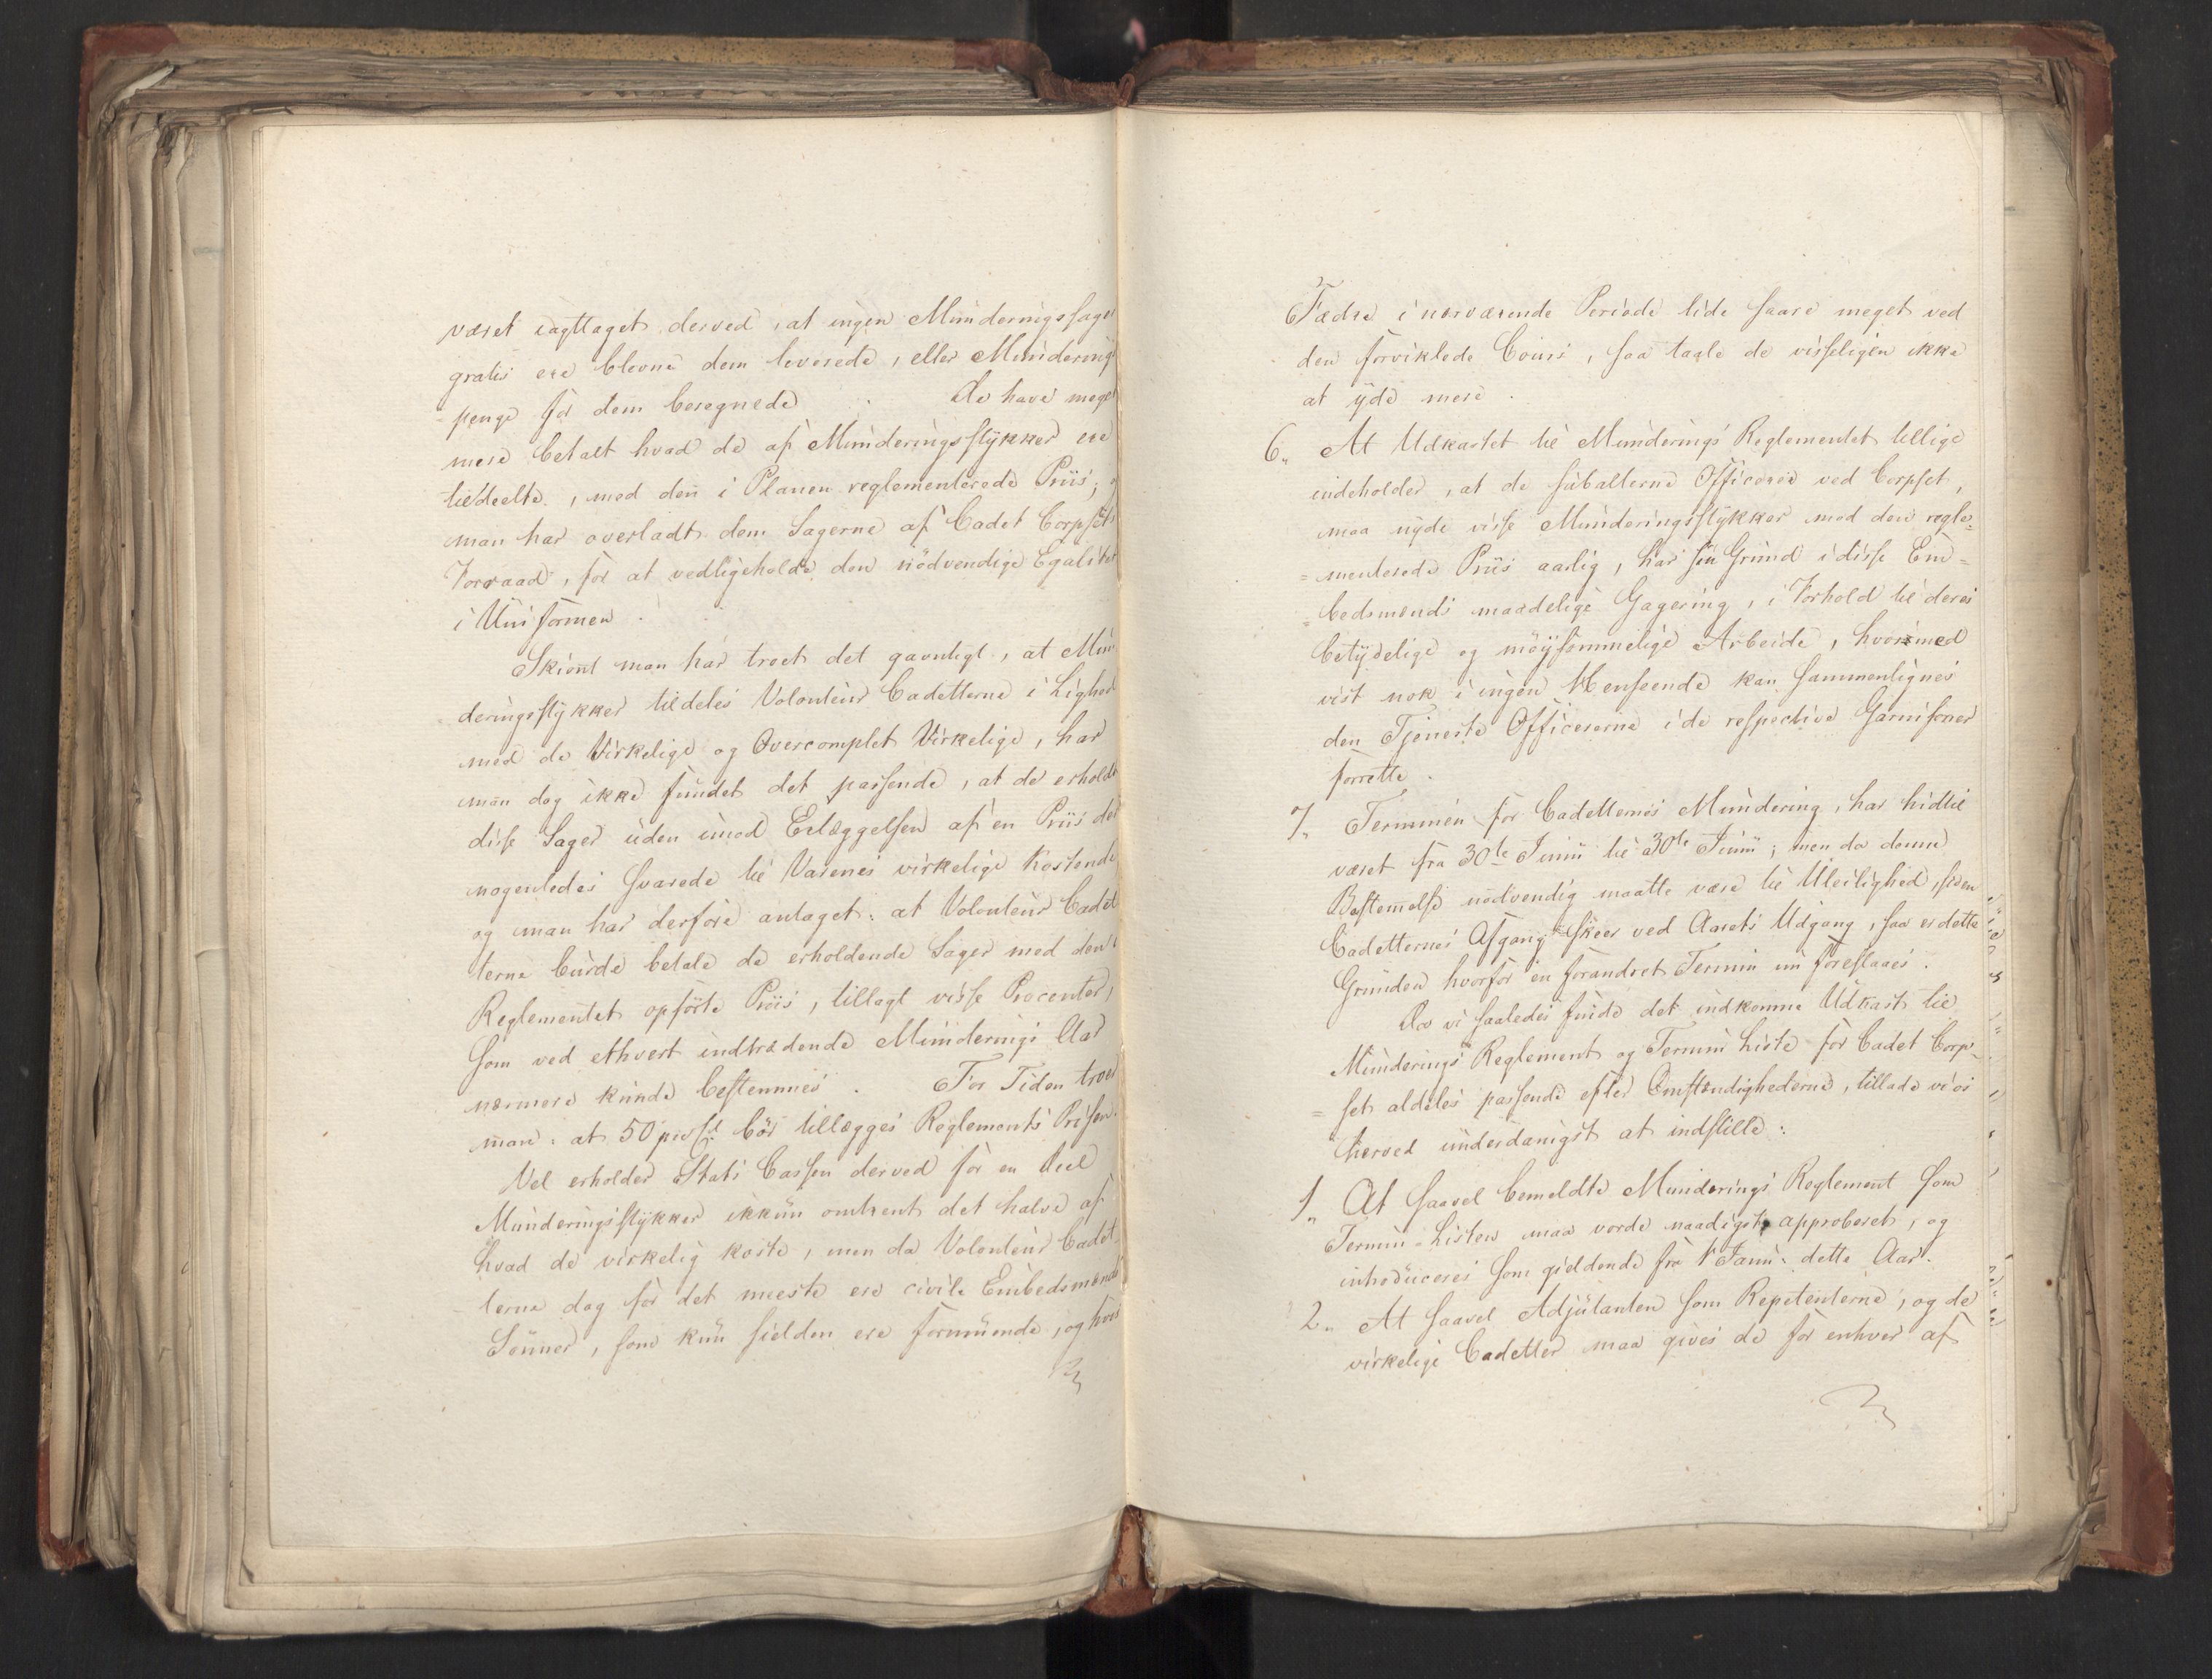 været iagttaget derved, at ingen Munderingssager
gratis ere blevne dem leverede, eller Munderings
penge for dem beregnede. De have meget
mere betalt hvad de af Munderingsstykker ere
tildeelte, med den i Planen reglementerede Priis; og
man har overladt dem Sagerne af Cadet Corpsets
Forraad, for at vedligeholde den nödvendige Egalitet
i Uniformen.
Skiönt man har troet det gavnligt, at Mun-
deringsstykker tildeles Volonteur Cadetterne i Lighed
med de Virkelige og Overcomplet Virkelige, har
man dog ikke fundet det passende, at de erholdt
disse Sager uden imod Erlæggelsen af en Priis der
nogenledes svarede til Varenes virkelige Kostende
og man har derföre antaget: at Volonteur Cadet
terne burde betale de erholdende Sager med den i
Reglementet opförte Priis, tillagt visse Procenter,
som ved ethvert indtrædende Munderings Aar
nærmere kunde bestemmes. For Tiden troer
man: at 50 proCt bör tillægges Reglements Prisen.
Vel erholder Stats Cassen derved for en Deel
Munderingsstykker ikkun omtrent det halve af
hvad de virkelig koste, men da Volonteur Cadet
terne dog for det meeste ere civile Embedsmænds
Sönner, som kun sielden ere formuende, og hvis
Fædre i nærværende Periode lide saare meget ved
den forviklede Cours, saa taale de visseligen ikke
at yde mere.
6. At Udkastet til Munderings Reglementet tillige
indeholder, at de subalterne Officerer ved Corpset,
maa nyde visse Munderingsstykker med den regle-
=menterede Priis aarlig, har sin Grund i disse Em=
=bedsmænds maadelige Gagering, i Forhold til deres
betydelige og möysommelige Arbeide, hvormed
vist nok i ingen Henseende kan sammenlignes
den Tjeneste Officererne i de respective Garnisoner
forrette.
7. Terminen for Cadetternes Mundering, har hidtil
været fra 30te Junii til 30te Junii; men da denne
Bestemmelse nödvendig maatte være til Uleilighed, siden
Cadetternes Afgang skeer ved Aarets Udgang, saa er dette
Grunden hvorfor en forandret Termin nu foreslaaes.
Da vi saaledes finde det indkomne Udkast til
Munderings Reglement og Termin Liste for Cadet Corp-
=set aldeles passende efter Omstændighederne, tillade vi os
herved underdanigst at indstille:
1. At saavel bemeldte Munderings Reglement som
Termin-Listen maa vorde naadigst approberet, og
introduceres som gieldende fra 1 Janu: dette Aar.
2. At saavel Adjutanten som Repetenterne, og de
virkelige Cadetter maa gives de for enhver af